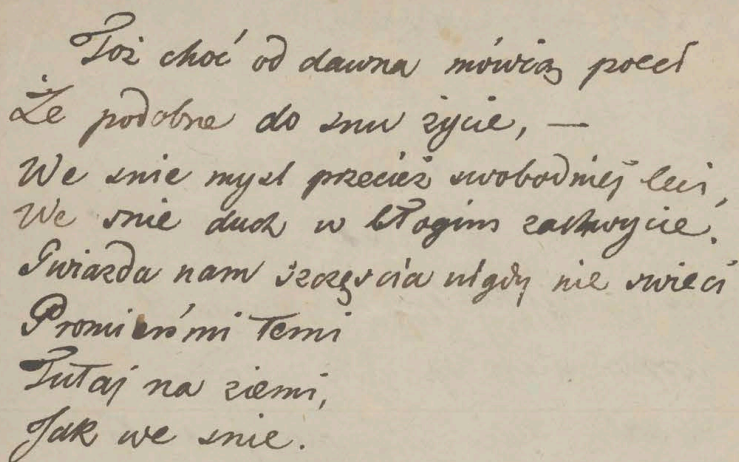 Toż choć od dawna mówią poeci
Że podobne do snu życie, —
We snie mysl przecież swobodniej leci,
We snie duch w błogim zachwycie.
Gwiazda nam szczęscia nigdy nie swieci
Promieńmi temi
Tutaj na ziemi,
Jak we snie.